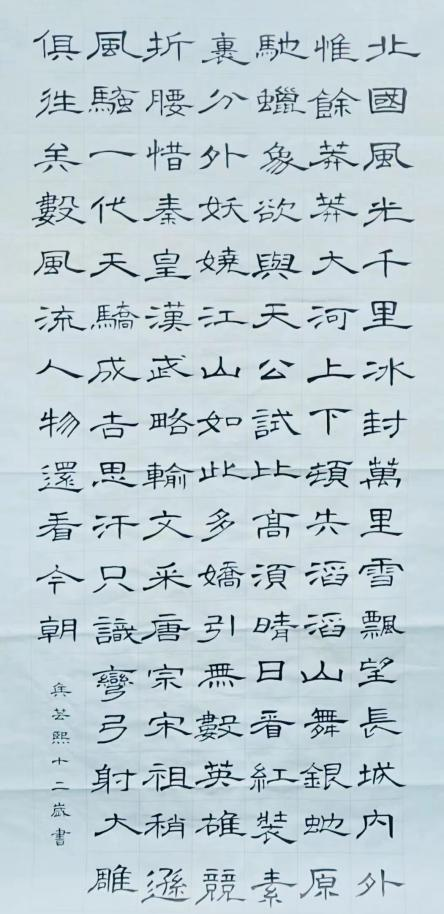 北國風光千里冰封萬里雪飄望長城内外
惟餘莽莽大河上下頓失滔滔山舞銀蛇原
馳蠟象欲與天公試比高須晴日看紅裝素
裏分外妖嬈江山如此多嬌引無數英雄競
折腰惜秦皇漢武略輸文采唐宗宋祖稍遜
風騷一代天驕成吉思汗只識彎弓射大雕
俱往矣數風流人物還看今朝
芸熙十二歲書